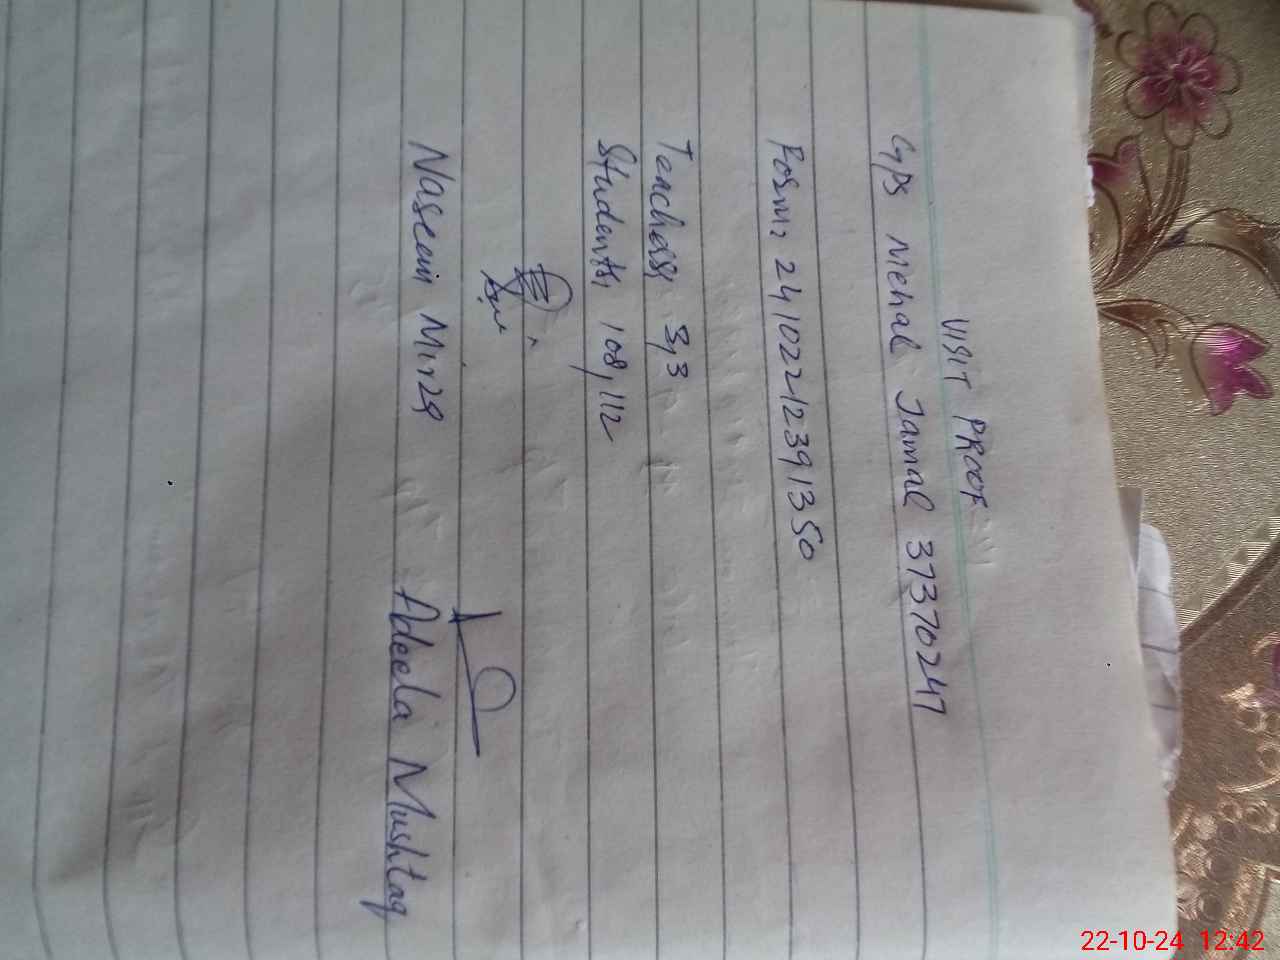 VISIT PROOF
GPS Nehal Jamal 37370247
24102212391350
Teachers, 3,3
Students, 108,112
Naseem Mirza
Adeela Mushtaq
22-10-24 12:42